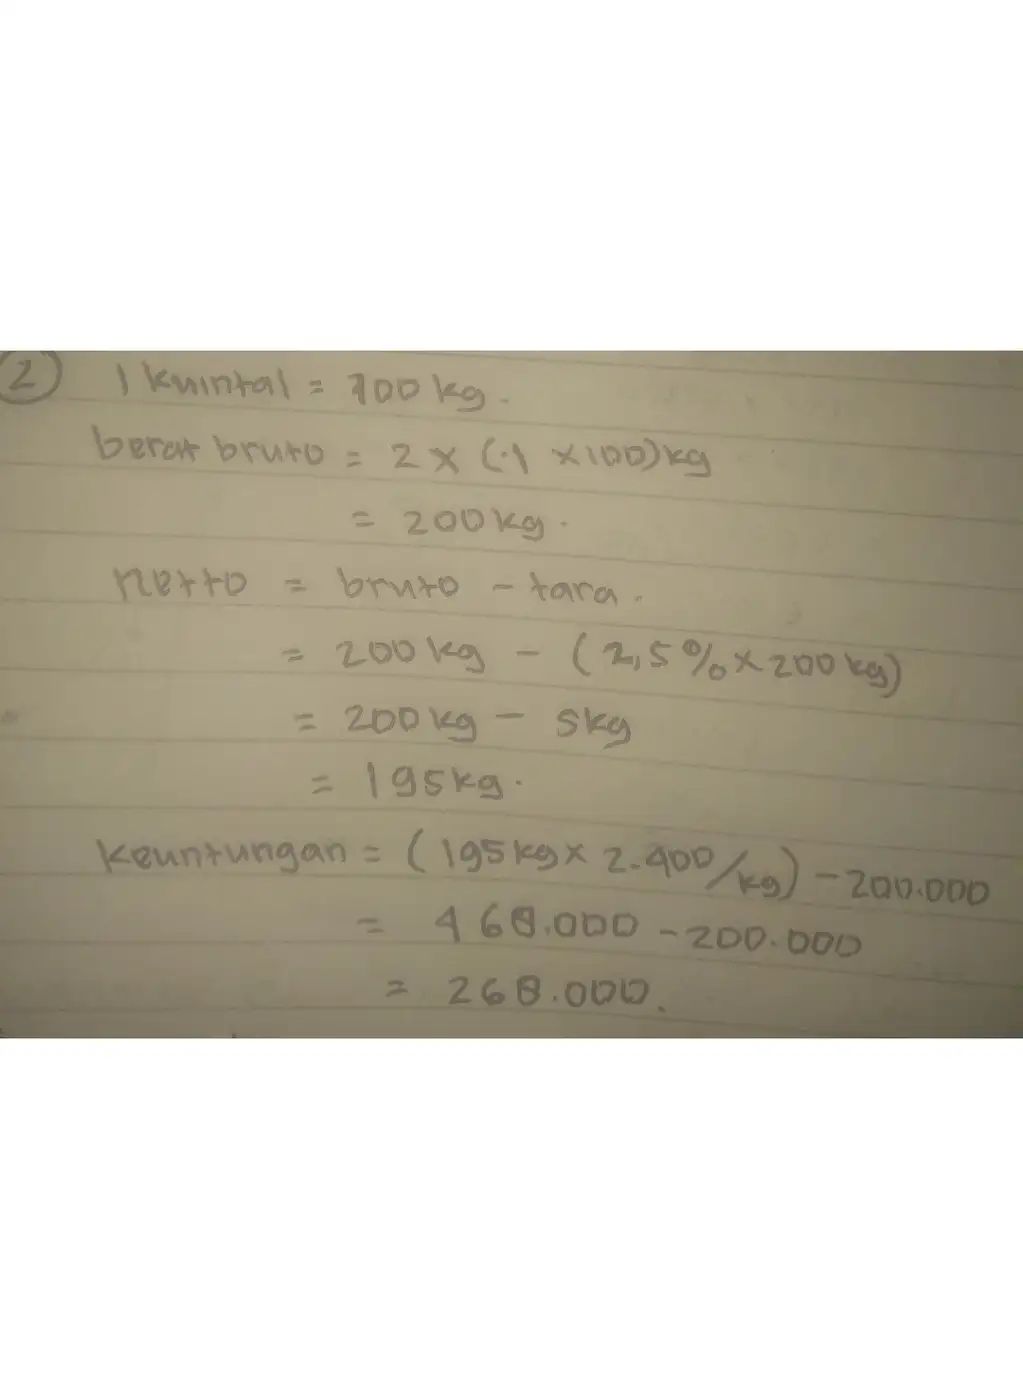 2 1 kuintal = 100 kg.
berat bruto = 2 x (1 x100)kg
= 200 kg.
netto = bruto - tara.
= 200 kg - (2,5% x 200 kg)
= 200 kg - 5kg
= 195kg.
Keuntungan = (195 kg x 2.400/kg) - 200.000
= 468.000 - 200.000
= 268.000.